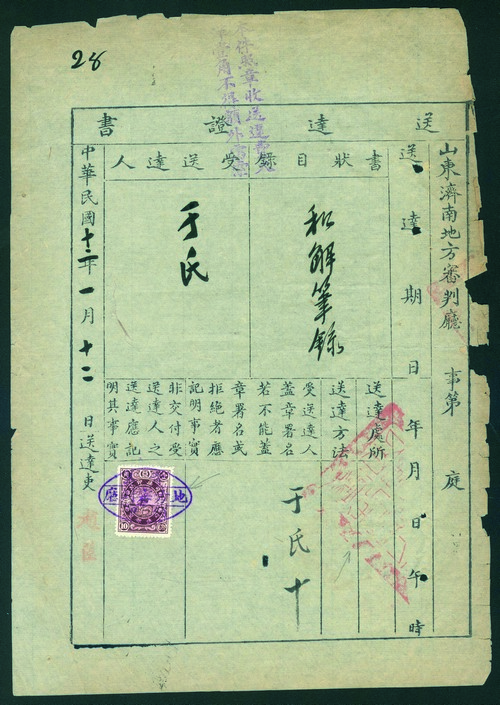 28
送達證書
山東濟南地方審判廳 事第 庭
送達期日 年 月 日 午 時
書狀目錄
和解筆錄
受送達人
于氏
送達處所
送達方法
受送達人
蓋章署名
若不能蓋
章署名或
拒絕者應
記明事實
非交付受
送達人之
送達應記
明其事實
于氏十
地審廳
10
中華民國十二年一月十二日送達吏